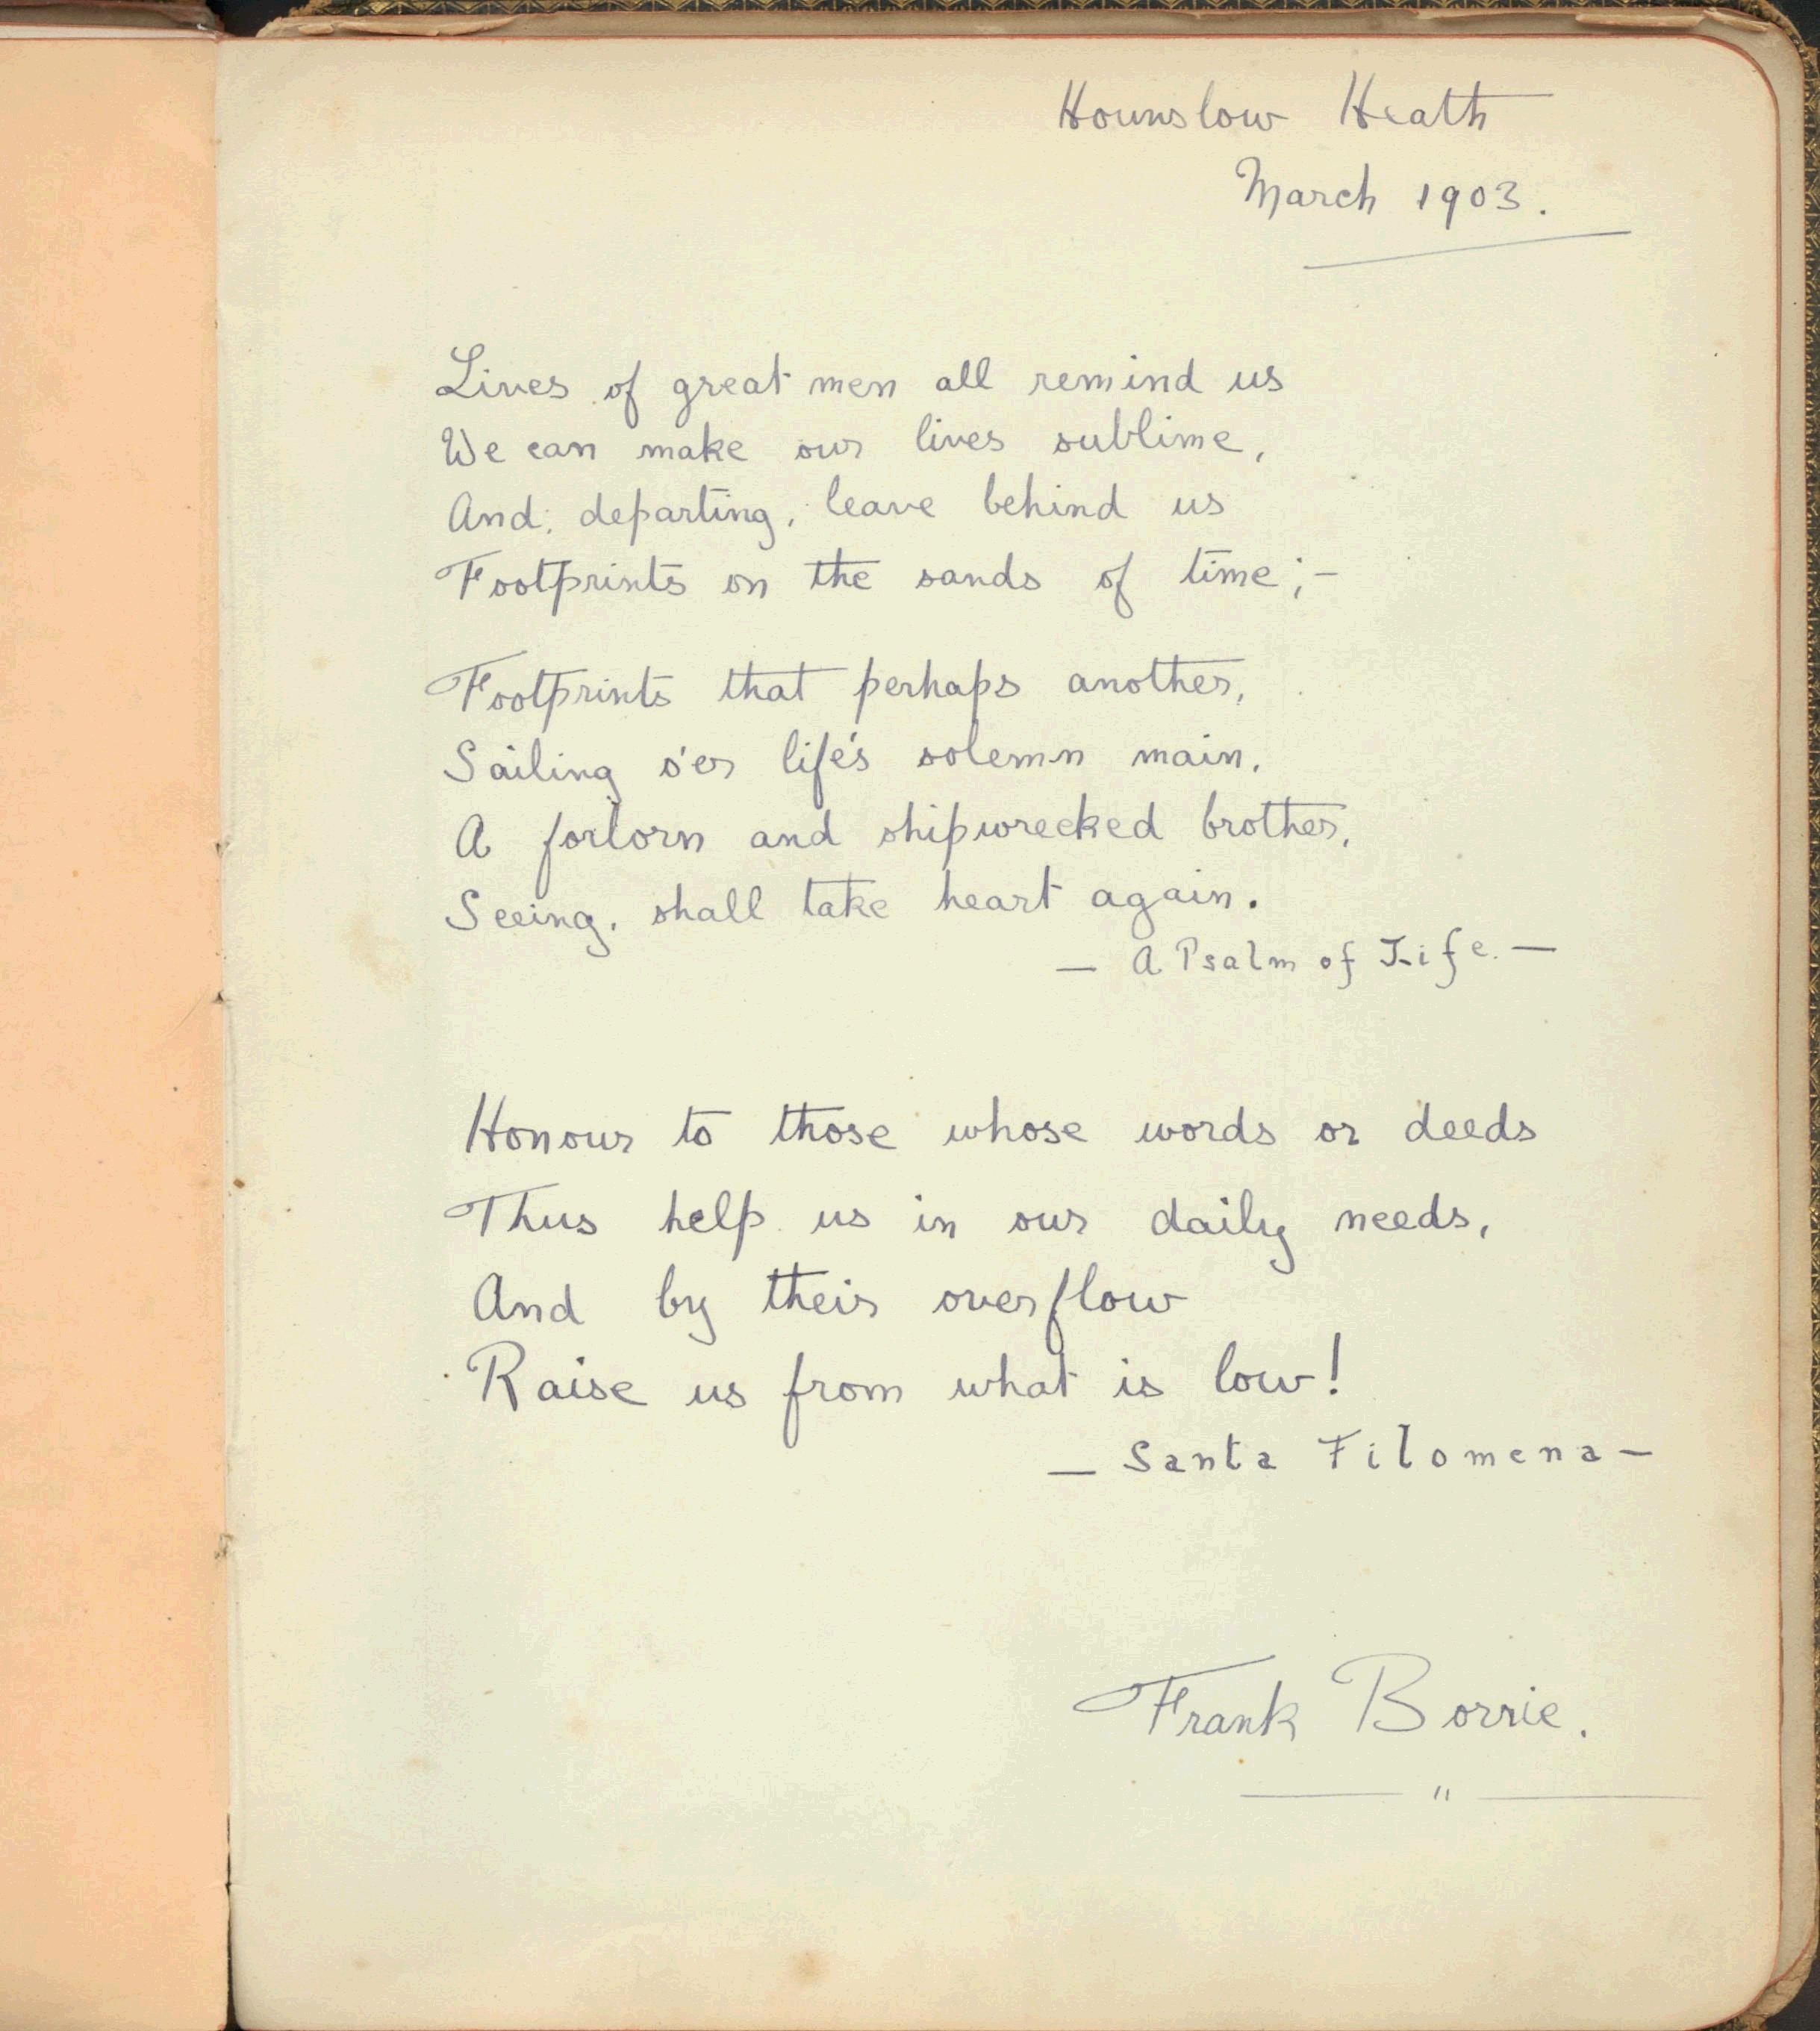 Hounslow Heath
March 1903.
Lives of great men all remind us
We can make our lives sublime,
And, departing, leave behind us
Footprints on the sands of time;-
Footprints that perhaps another,
Sailing o'er life's solemn main,
A forlorn and shipwrecked brother,
Seeing, shall take heart again.
— A Psalm of Life. —
Honour to those whose words or deeds
Thus help us in our daily needs,
And by their overflow
Raise us from what is low!
— Santa Filomena —
Frank Borrie.
——— " ———